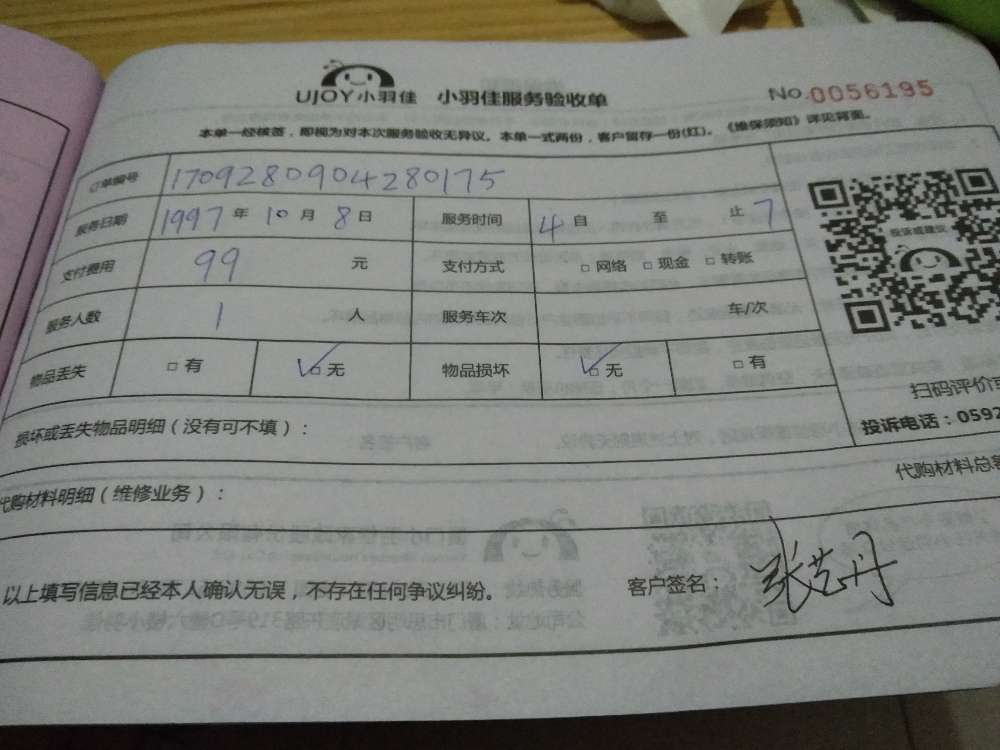 UJOY小羽佳 小羽佳服务验收单 No.0056195
本单一经核签，即视为对本次服务验收无异议。本单一式两份，客户留存一份(红)。《维保须知》详见背面。
订单编号 1709280904280175
服务日期 1997年10月8日 服务时间 4自 至 止7
支付费用 99 元 支付方式 □网络 □现金 □转账
服务人数 1 人 服务车次 车/次
物品丢失 □有 ✓□无 物品损坏 ✓□无 □有
投诉或建议
扫码评价或
损坏或丢失物品明细（没有可不填）：
投诉电话：0592
代购材料明细（维修业务）：
代购材料总
以上填写信息已经本人确认无误，不存在任何争议纠纷。 客户签名：张艺丹